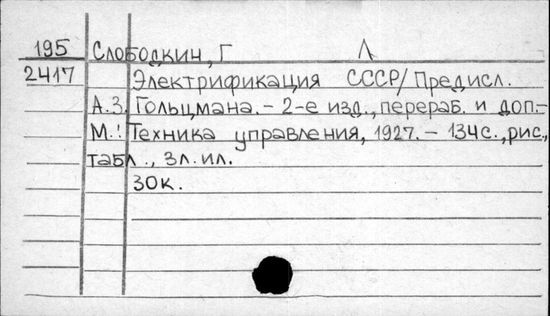 195 Слободкин, Г Л
2417 Электрификация СССР/Предисл.
А.З. Гольцмана. - 2-е изд., перераб. и доп.-
М.: Техника управления, 1927. - 134с., рис.,
табл., 3л. ил.
30к.